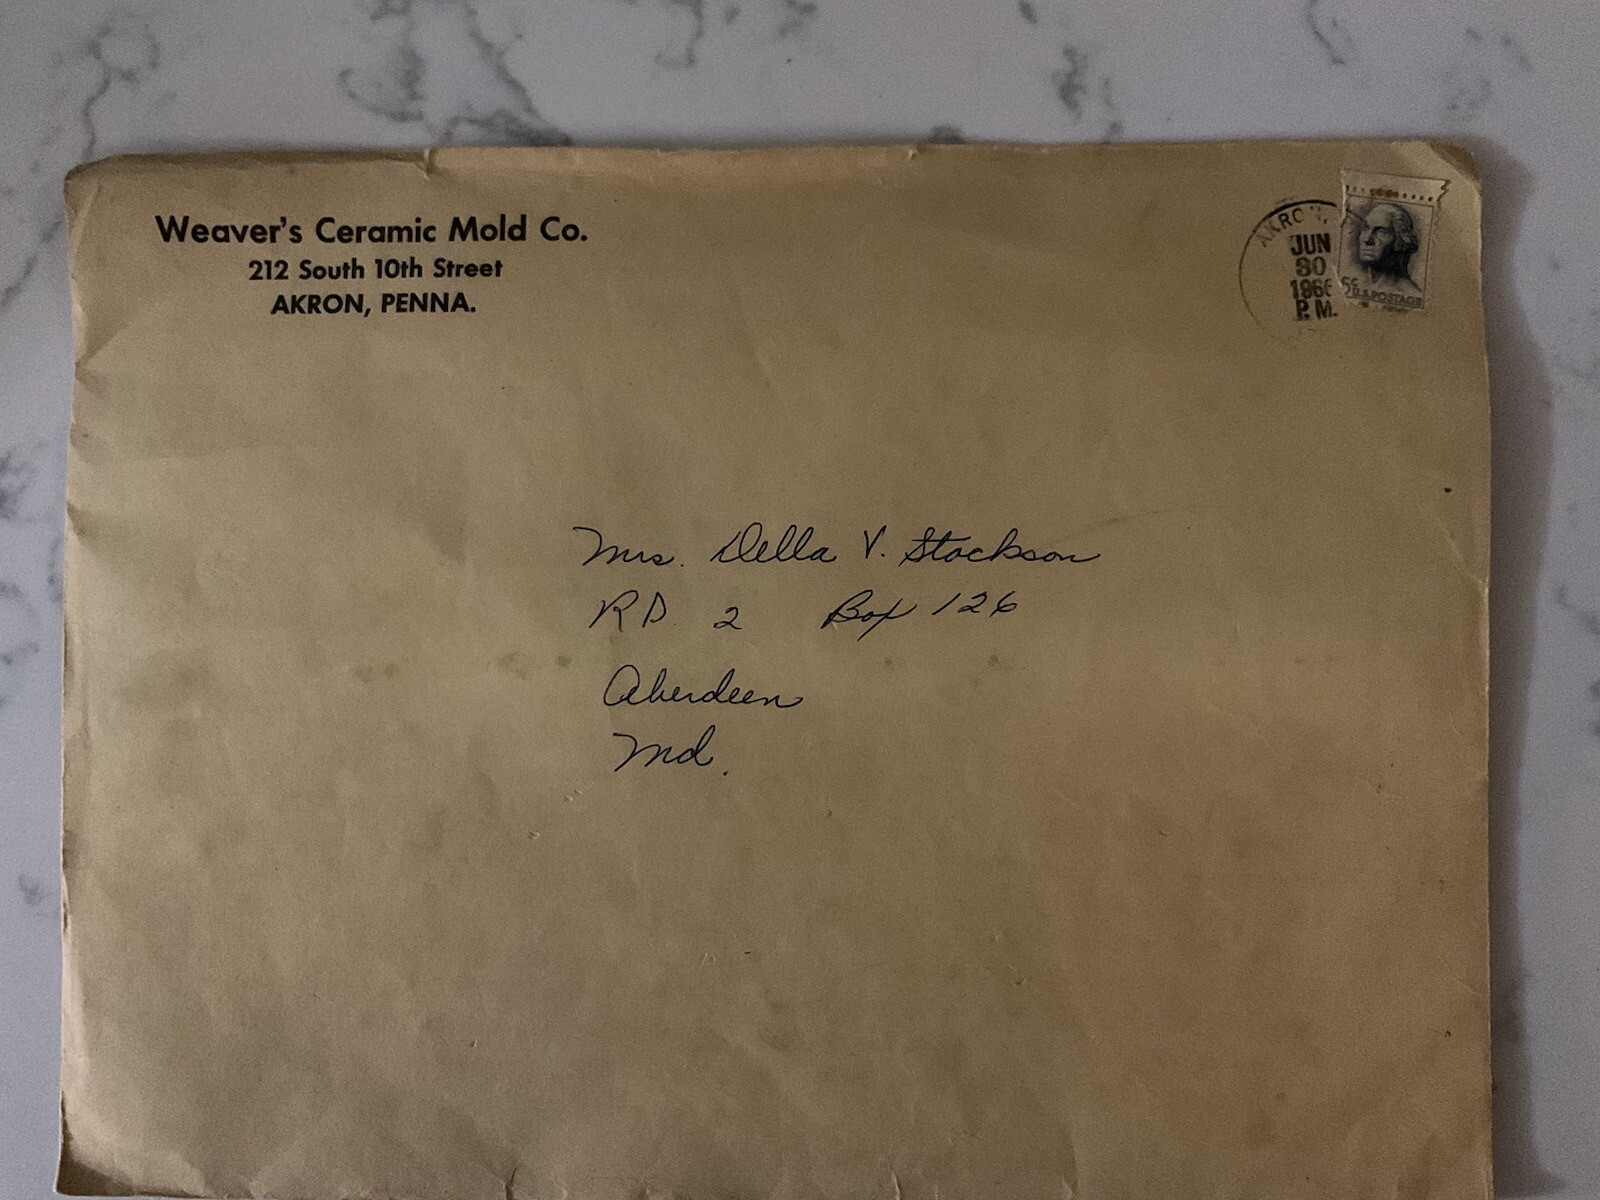 Weaver's Ceramic Mold Co.
212 South 10th Street
AKRON, PENNA.
AKRON,
JUN
30
1966
P.M.
5c
U.S.POSTAGE
Mrs. Della V. Stockson
RD 2 Box 126
Aberdeen
Md.